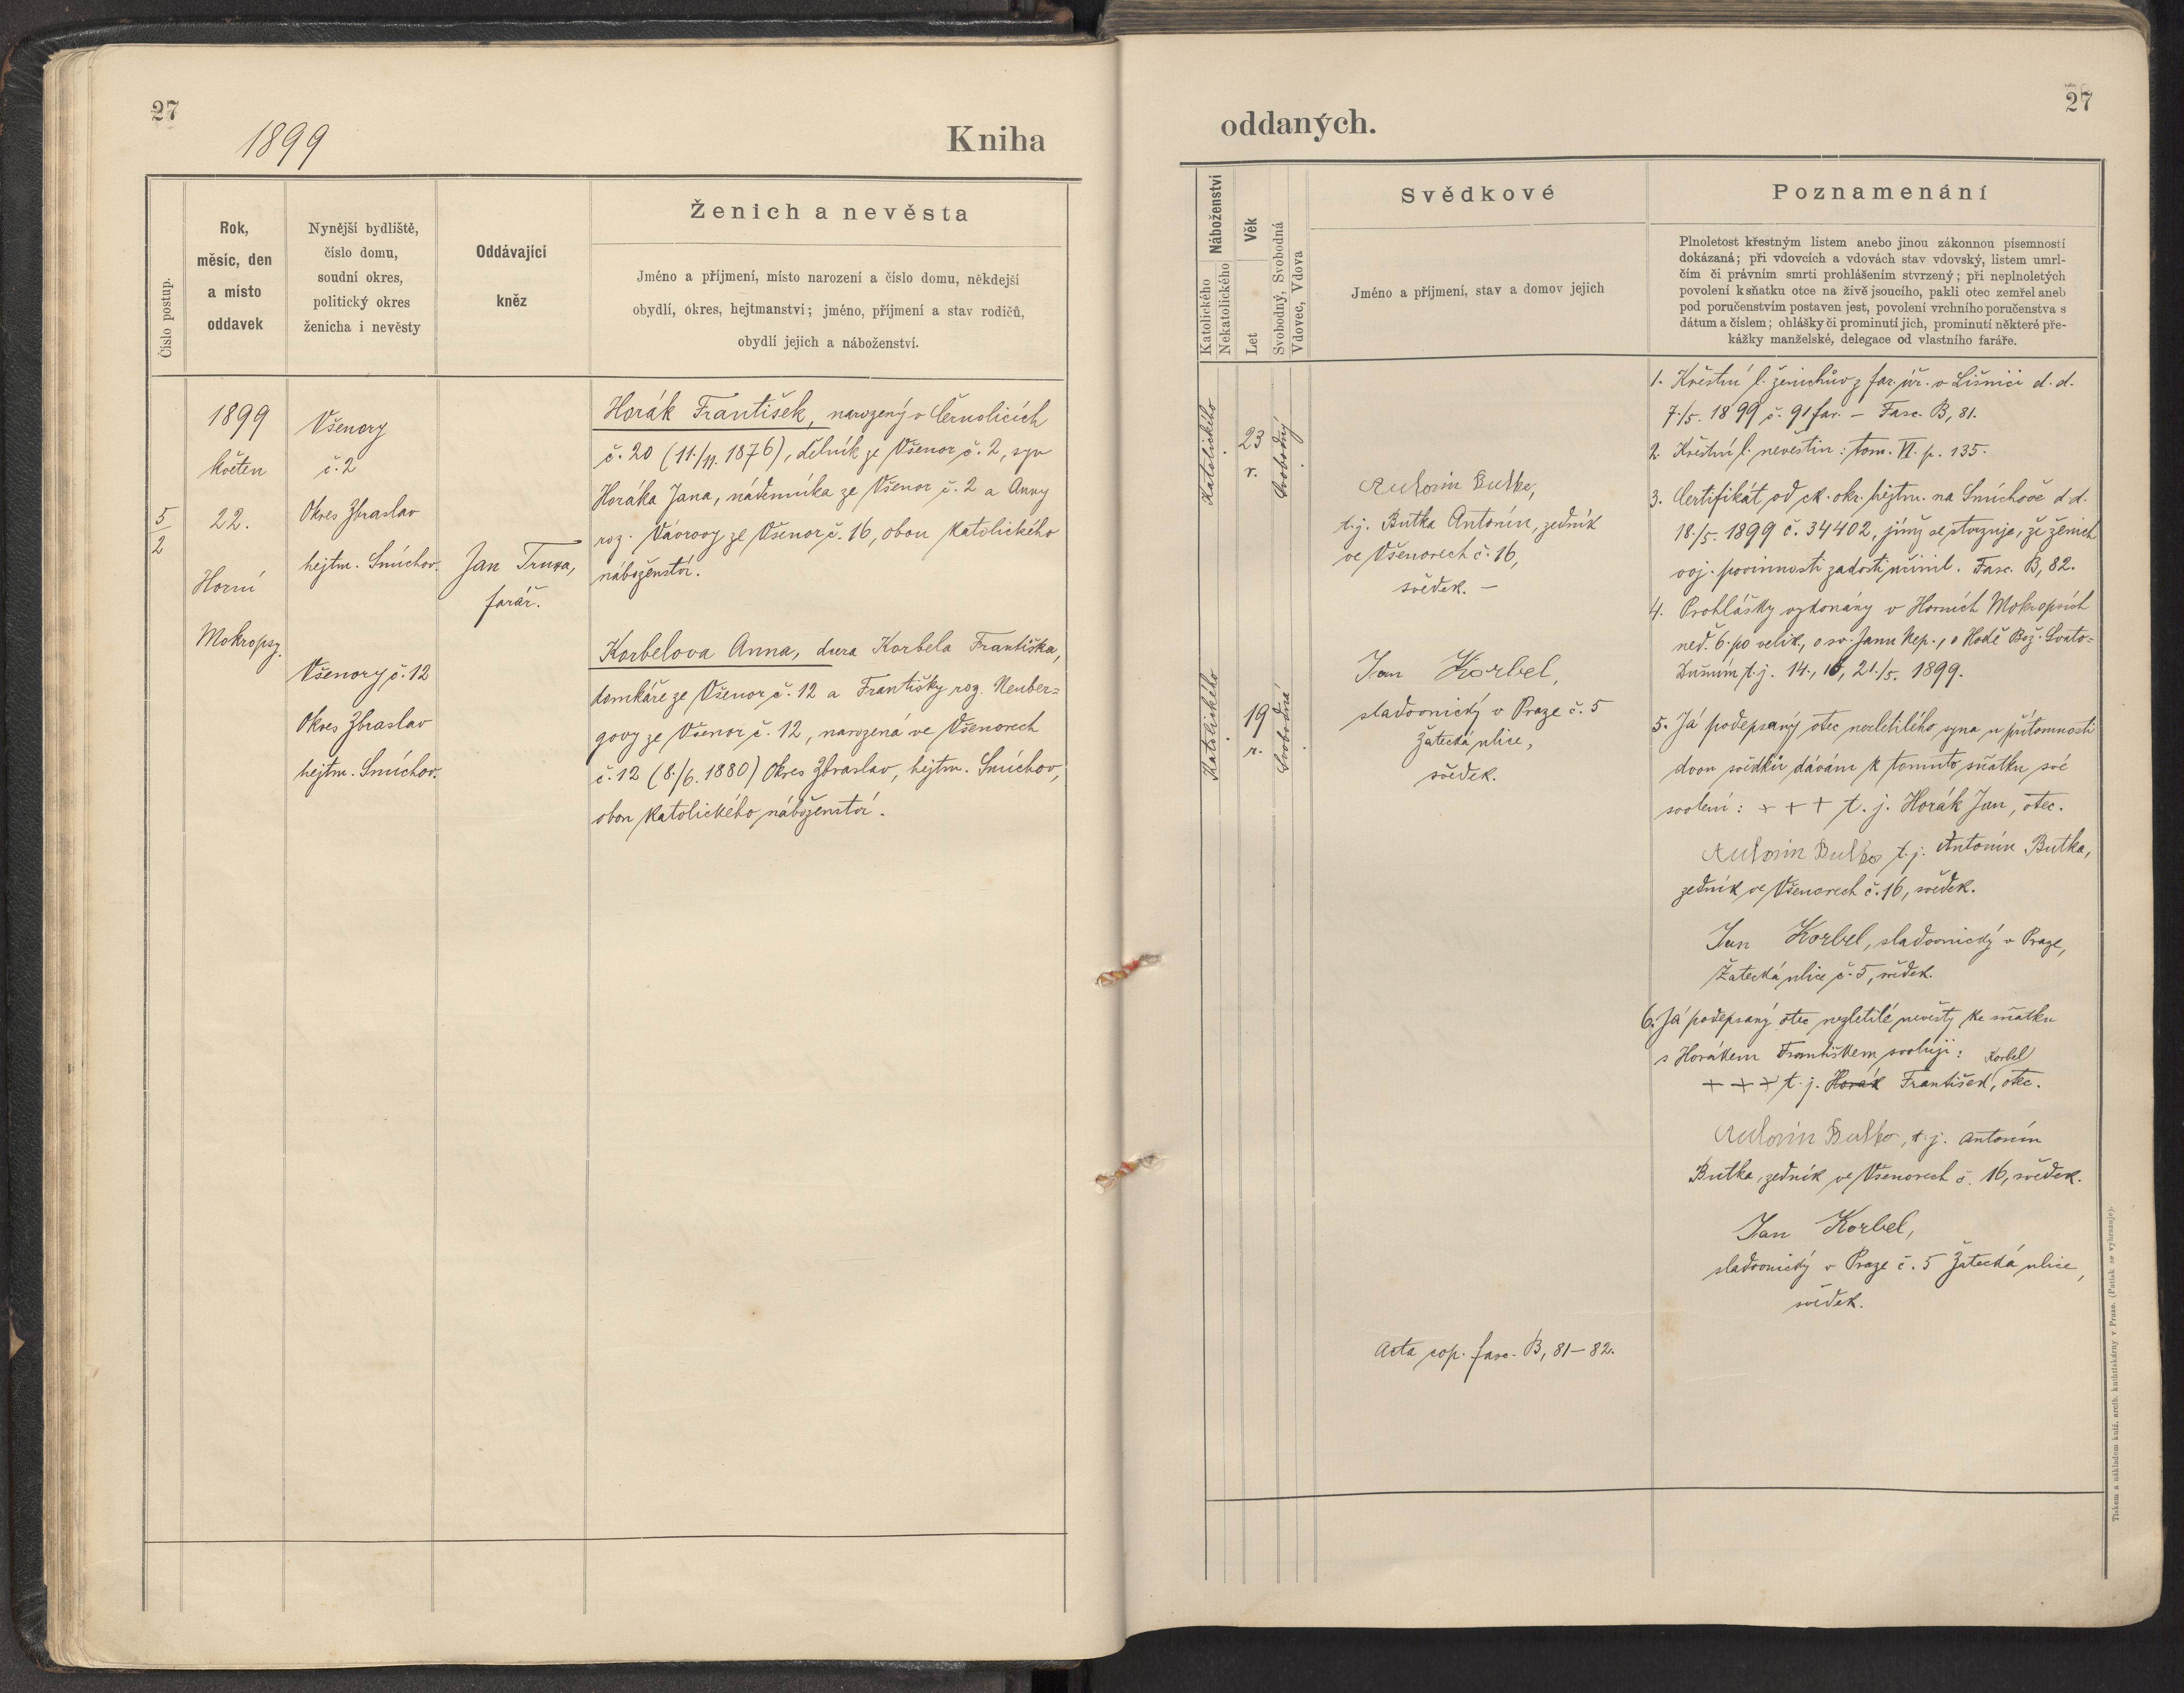 27
1899
Kniha
Číslo postup.
Rok,
měsíc, den
a místo
oddavek
Nynější bydliště,
číslo domu,
soudní okres,
politický okres
ženicha i nevěsty
Oddávající
kněz
Ženich a nevěsta
Jméno a příjmení, místo narození a číslo domu, někdejší
obydlí, okres, hejtmanství; jméno, příjmení a stav rodičů,
obydlí jejich a náboženství.
5
2
1899
květen
22.
Horní
Mokropsy.
Všenory
č. 2
Okres Zbraslav
hejtm. Smíchov.
Všenory č. 12
Okres Zbraslav
hejtm. Smíchov.
Jan
farář.
Horák František, narozený v Černolicích
č. 20 (11./11. 1876), dělník ze Všenor č. 2, syn
Horáka Jana, nádenníka ze Všenor č. 2 a Anny
roz. Vávrovy ze Všenor č. 16, obou katolického
náboženství.
Korbelova Anna, dcera Korbela Františka,
domkáře ze Všenor č. 12 a Františky roz. Neuber=
govy ze Všenor č. 12, narozená ve Všenorech
č. 12 (8./6. 1880) Okres Zbraslav, hejtm. Smíchov,
obou katolického náboženství.
oddaných.
27
Náboženství
Katolického
Nekatolického
Věk
Let
Svobodný, Svobodná
Vdovec, Vdova
Svědkové
Jméno a příjmení, stav a domov jejich
Poznamenání
Plnoletost křestným listem anebo jinou zákonnou písemností
dokázaná; při vdovcích a vdovách stav vdovský, listem umrl-
čím či právním smrti prohlášením stvrzený; při neplnoletých
povolení k sňatku otce na živě jsoucího, pakli otec zemřel aneb
pod poručenstvím postaven jest, povolení vrchního poručenstva s
dátum a číslem; ohlášky či prominutí jich, prominutí některé pře-
kážky manželské, delegace od vlastního faráře.
Katolického
23
r.
Svobodný
Katolického
19
r.
Svobodná
Antonin Butka,
t. j. Butka Antonín, zedník
ve Všenorech č. 16,
svědek. —
Jan Korbel,
sladovnický v Praze č. 5
Žatecká ulice,
svědek.
Acta cop. fasc. B, 81–82.
1. Křestní l. ženichův z far. úř. v Líšnici d. d.
7./5. 1899 č. 91 far. — Fasc. B, 81.
2. Křestní l. nevěstin: tom. VI. p. 135.
3. Certifikát od ck. okr. hejtm. na Smíchově d. d.
18./5. 1899 č. 34402, jímž se stvrzuje, že ženich
voj. povinnosti zadosti učinil. Fasc. B, 82.
4. Prohlášky vykonány v Horních Mokropsích
ned. 6. po velik., o sv. Janu Nep., o Hodě Bož. Svato=
Dušním t. j. 14., 16, 21./5. 1899.
5. Já podepsaný otec nezletilého syna u přítomnosti
dvou svědků dávám k tomuto sňatku své
svolení: + + + t. j. Horák Jan, otec.
Antonin Butka t. j. Antonín Butka,
zedník ve Všenorech č. 16, svědek.
Jan Korbel, sladovnický v Praze,
Žatecká ulice č. 5, svědek.
6. Já podepsaný otec nezletilé nevěsty ke sňatku
s Horákem Františkem svoluji: Korbel
+ + + t. j. Horák František, otec.
Antonin Butka, t. j. Antonín
Butka, zedník ve Všenorech č. 16, svědek.
Jan Korbel,
sladovnický v Praze č. 5 Žatecká ulice,
svědek.
Tiskem a nákladem kníž. arcib. knihtiskárny v Praze. (Patisk se vyhrazuje).